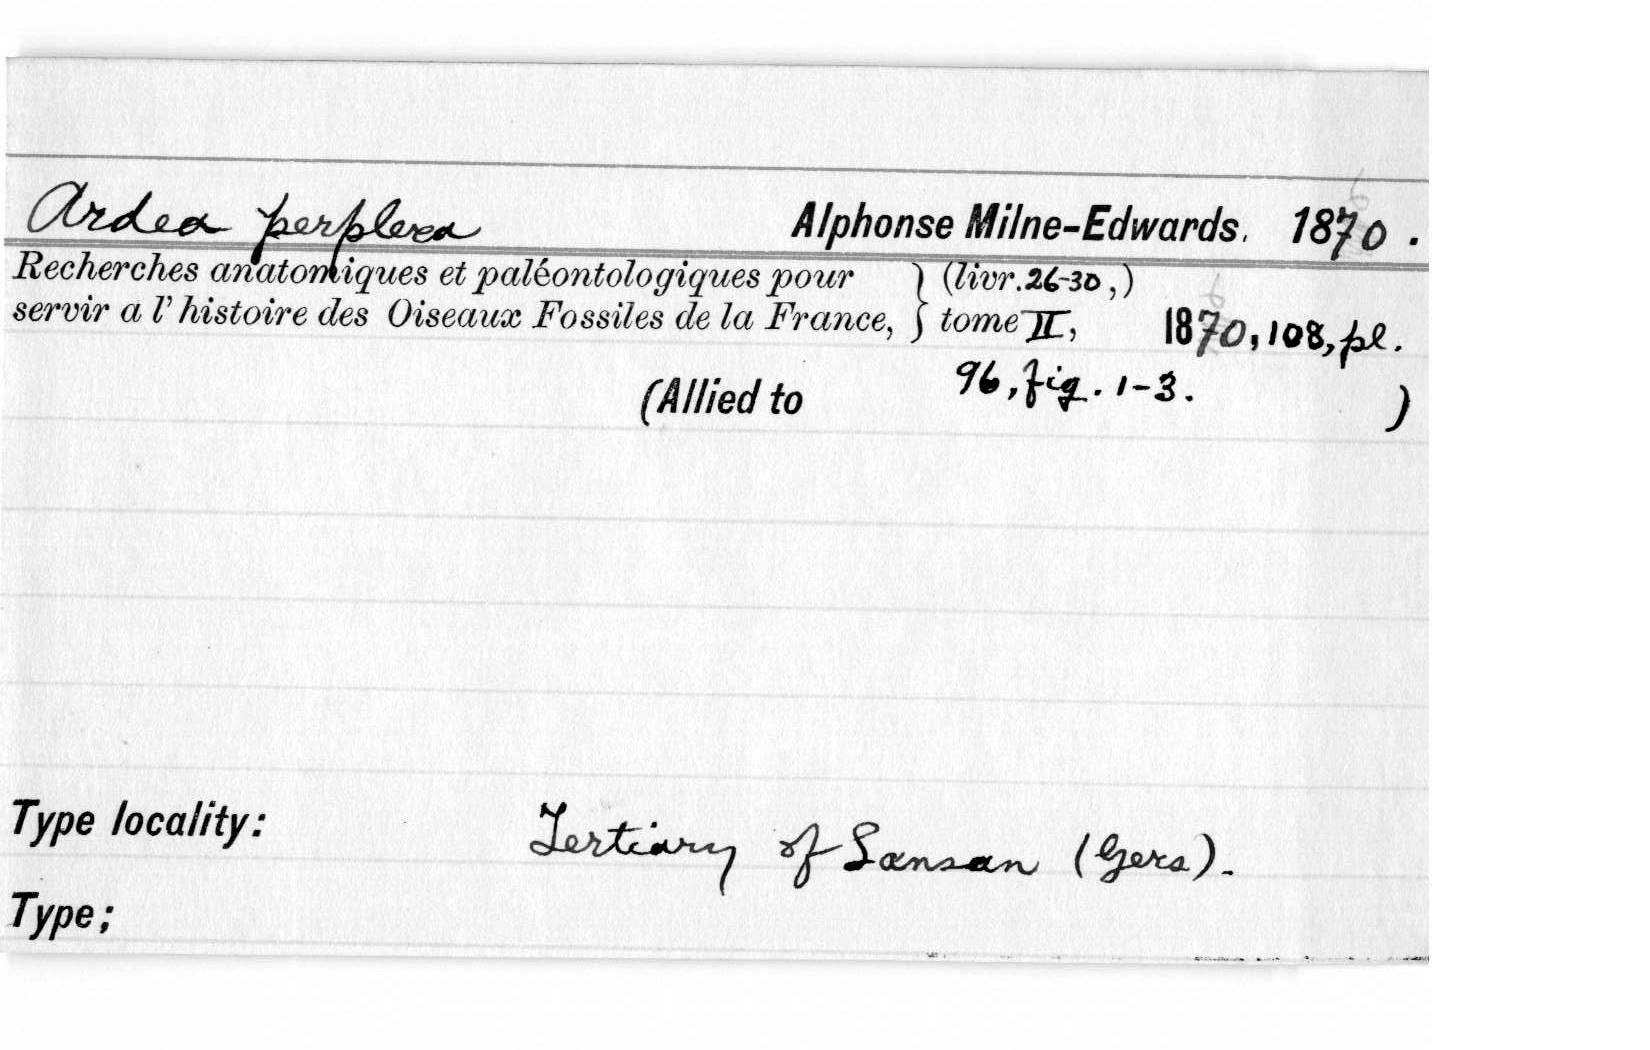 Ardea perplexa Alphonse Milne-Edwards. 1870.
Recherches anatomiques et paléontologiques pour } (livr. 26-30,)
servir a l'histoire des Oiseaux Fossiles de la France, } tome II, 1870, 108, pl.
96, fig. 1-3.
(Allied to )
Type locality: Tertiary of Sansan (Gers).
Type;